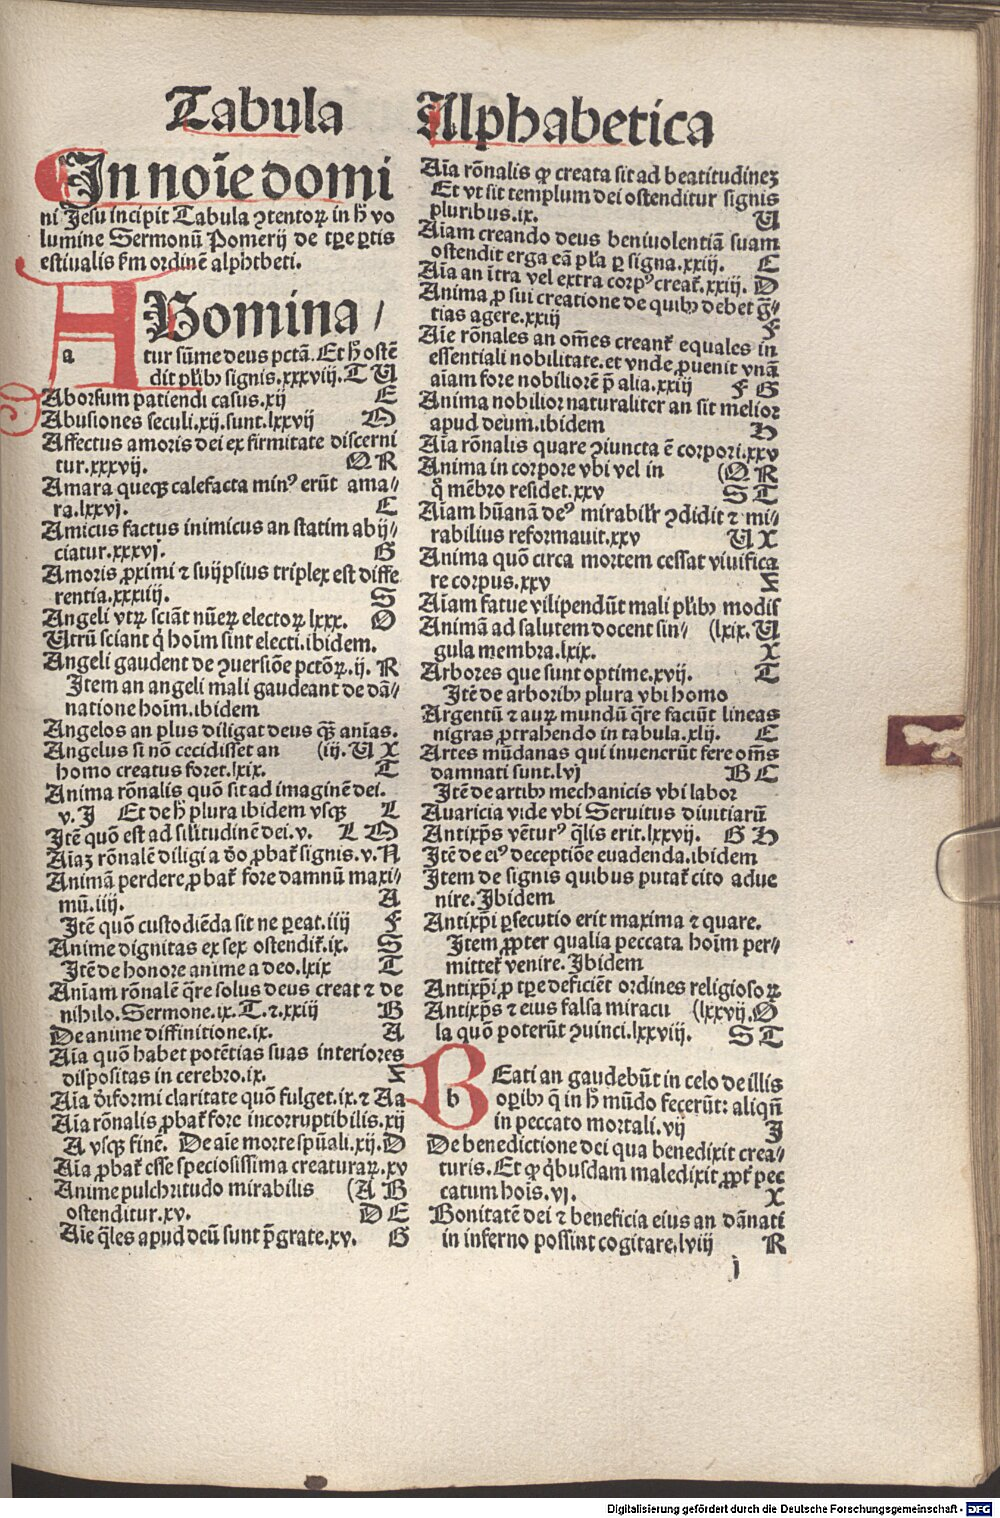 Tabula Alphabetica
In noīe domi
ni Jesu incipit Tabula ꝯtentoꝝ in h̄ vo
lumine Sermonū Pomerij de tꝑe ꝑtis
estiualis ẜm ordinē alphtbeti.
ABomina/
a tur sūme deus pctā. Et h̄ ostē
dit pl'ibꝰ signis.xxxviij. T U
Aborsum patiendi casus.xij E
Abusiones seculi.xij.sunt.lxxvij O
Affectus amoris dei ex firmitate discerni
tur.xxxvij. Q R
Amara quecꝫ calefacta minꝰ erūt ama/
ra.lxxvj. E
Amicus factus inimicus an statim abij/
ciatur.xxxvj. G
Amoris ꝓximi ⁊ suijpsius triplex est diffe
rentia.xxxiiij. S
Angeli vtꝝ sciāt nūeꝝ electoꝝ lxxx. O
Utrū sciant q̇ hoīm sint electi.ibidem.
Angeli gaudent de ꝯuersiōe pctōꝝ.ij. R
Item an angeli mali gaudeant de dā/
natione hoīm.ibidem
Angelos an plus diligat deus qꝫ̄ anīas.
Angelus si nō cecidisset an (iij. U X
homo creatus foret.lxix. T
Anima rōnalis quō sit ad imaginē dei.
v. J Et de h̄ plura ibidem vscꝫ L
Itē quō est ad sil'itudinē dei.v. L O
Aīaꝫ rōnalē diligi a dō ꝓbat̃ signis.v. N
Animā perdere ꝓbat̃ fore damnū maxi/
mū.iiij. A
Itē quō custodiēda sit ne ꝑeat.iiij F
Anime dignitas ex sex ostendit̃.ix. S
Itē de honore anime a deo.lxix T
Anīam rōnalē q̄re solus deus creat ⁊ de
nihilo. Sermone.ix. T. ⁊.xxiij B
De anime diffinitione.ix. A
Aīa quō habet potētias suas interiores
dispositas in cerebro.ix. K
Aīa dīformi claritate quō fulget.ix. ⁊ Aa
Aīa rōnalis ꝓbat̃ fore incorruptibilis.xij
A vscꝫ finē. De aīe morte sp̄uali.xij. D
Aīa ꝓbat̃ esse speciosissima creaturaꝝ.xv
Anime pulchritudo mirabilis (A B
ostenditur.xv. D E
Aīe q̄les apud deū sunt p̄grate.xv. G
Aīa rōnalis ꝙ creata sit ad beatitudineꝫ
Et vt sit templum dei ostenditur signis
pluribus.ix. U
Aīam creando deus beniuolentiā suam
ostendit erga eā pl'a ꝑ signa.xxiij. C
Aīa an īra vel extra corpꝰ creat̃.xxiij. D
Anima ꝓ sui creatione de quibꝰ debet gr̄/
tias agere.xxiij F
Aīe rōnales an om̄es creant̃ equales in
essentiali nobilitate.et vnde ꝓuenit vnā
aīam fore nobiliorē p̄ alia.xxiij F G
Anima nobilior naturaliter an sit melior
apud deum.ibidem H
Aīa rōnalis quare ꝯiuncta ē corpori.xxv
Anima in corpore vbi vel in (Q R
q̊ mēbro residet.xxv S T
Aīam hūanā deꝰ mirabil'r ꝯdidit ⁊ mi/
rabilius reformauit.xxv U X
Anima quō circa mortem cessat viuifica
re corpus.xxv K
Aīam fatue vilipendūt mali pl'ibꝰ modis
Animā ad salutem docent sin/ (lxix. U
gula membra.lxix. X
Arbores que sunt optime.xvij. T
Itē de arboribꝰ plura vbi homo
Argentū ⁊ auꝝ mundū q̄re faciūt lineas
nigras ꝓtrahendo in tabula.xlij. E
Artes mūdanas qui inuenerūt fere om̄s
damnati sunt.lvj B C
Itē de artibꝰ mechanicis vbi labor
Auaricia vide vbi Seruitus diuitiarū
Antixp̄s vēturꝰ q̄lis erit.lxxvij. G H
Itē de eiꝰ deceptiōe euadenda.ibidem
Item de signis quibus putat̃ cito adue
nire. Ibidem
Antixp̄i ꝑsecutio erit maxima ⁊ quare.
Item ꝓpter qualia peccata hoīm per/
mittet̃ venire. Ibidem
Antixp̄i ꝓ tꝑe deficiēt ordines religiosoꝝ
Antixp̄s ⁊ eius falsa miracu (lxxvij. O
la quō poterūt ꝯuinci.lxxviij. S T
b BEati an gaudebūt in celo de illis
oꝑibꝰ q̄ in h̄ mūdo fecerūt: aliqn̄
in peccato mortali.vij J
De benedictione dei qua benedixit crea/
turis. Et ꝙ q̇busdam maledixit ꝓpt̃ pec
catum hoīs.vj. X
Bonitatē dei ⁊ beneficia eius an dānati
in inferno possint cogitare.lviij R
j
Digitalisierung gefördert durch die Deutsche Forschungsgemeinschaft - DFG